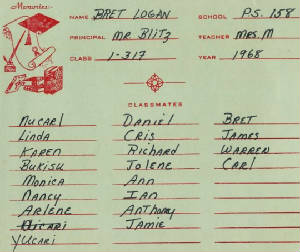 Memories:-
NAME BRET LOGAN SCHOOL P.S. 158
PRINCIPAL MR. BLITZ TEACHER MRS. M
CLASS 1-317 YEAR 1968
CLASSMATES
NuCARL DANiEl BRET
Linda CRIS JAMES
KAREN RichARd WARREN
BUKiSU JoLENE CARl
MONiCA ANN
NANCY IAN
ARlENE ANThoNY
HiCARi JAMiE
YUCARi